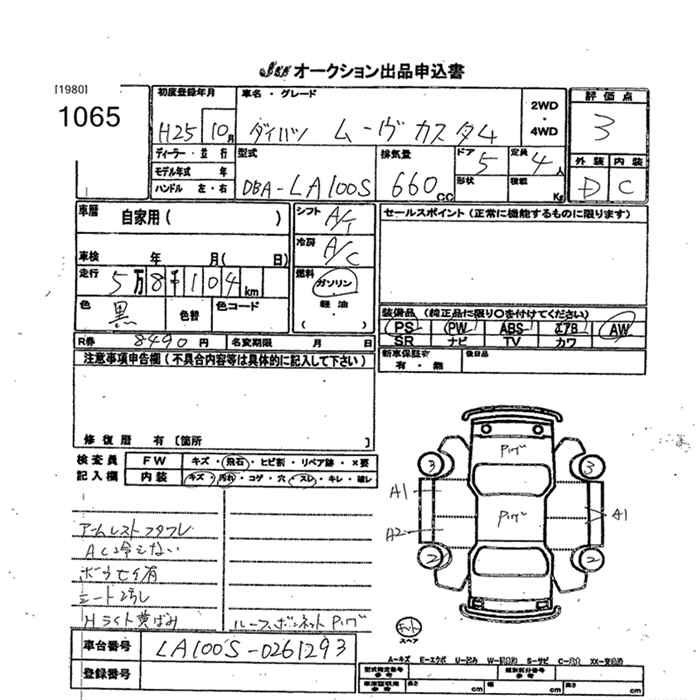 JU オークション出品申込書
[1980]
1065
初度登録年月
H25 10月
車名・グレード
ダイハツ ムーヴ カスタム
2WD
・
4WD
評価点
3
外装 内装
D C
ディーラー・並行
モデル年式 年
ハンドル 左・右
型式
DBA-LA100S
排気量
660 CC
ドア 5
形状
定員 4人
積載 Kg
車歴 自家用( )
シフト A/T
冷房 A/C
燃料 ガソリン
軽油
( )
車検 年 月( 日)
走行 5万8千104km
色 黒
色替
色コード
R券 8490円
名変期限 月 日
セールスポイント(正常に機能するものに限ります)
装備品(純正品に限り○を付けてください)
PS PW ABS エアB AW
SR ナビ TV カワ
新車保証書
有・無
後日品
注意事項申告欄(不具合内容等は具体的に記入して下さい)
修復歴 有〔箇所 〕
検査員
記入欄
FW キズ・飛石・ヒビ割・リペア跡・×要
内装 キズ・汚れ・コゲ・穴・スレ・キレ・破レ
アームレストフタワレ
AC冷えない
シート
Hライト黄ばみ
ルーフボンネット
3 3
A1
A2
A1
2 2
スペア
車台番号 LA100S-0261293
登録番号
A-キズ E-エクボ U-凹み S-サビ
型式指定番号
参考
類別区分番号
参考
長さ cm 幅 cm 高さ cm